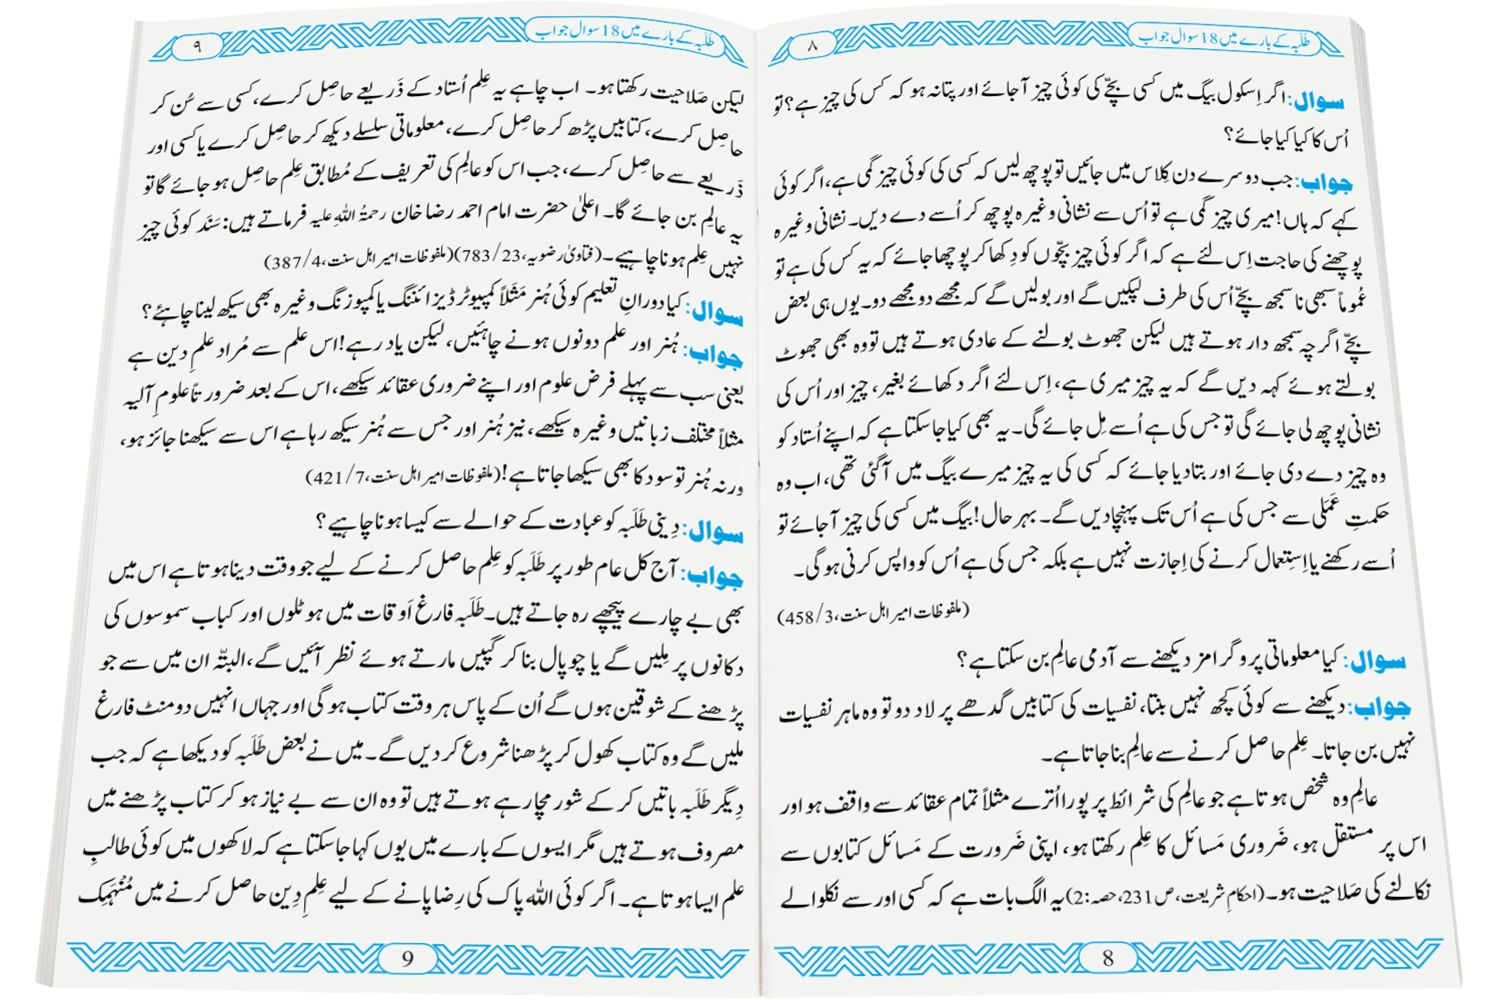 ۸
طلبہ کے بارے میں 18 سوال جواب
سوال: اگر اِسکول بیگ میں کسی بچّے کی کوئی چیز آجائے اور پتا نہ ہو کہ کس کی چیز ہے؟ تو
اُس کا کیا کیا جائے؟
جواب: جب دوسرے دن کِلاس میں جائیں تو پوچھ لیں کہ کسی کی کوئی چیز گمی ہے، اگر کوئی
کہے کہ ہاں! میری چیز گمی ہے تو اُس سے نشانی وغیرہ پوچھ کر اُسے دے دیں۔ نشانی وغیرہ
پوچھنے کی حاجت اِس لئے ہے کہ اگر کوئی چیز بچّوں کو دِکھا کر پوچھا جائے کہ یہ کس کی ہے تو
عُموماً سبھی ناسمجھ بچّے اُس کی طرف لپکیں گے اور بولیں گے کہ مجھے دو مجھے دو۔ یوں ہی بعض
بچّے اگرچہ سمجھ دار ہوتے ہیں لیکن جھوٹ بولنے کے عادی ہوتے ہیں تو وہ بھی جھوٹ
بولتے ہوئے کہہ دیں گے کہ یہ چیز میری ہے، اِس لئے اگر دکھائے بغیر، چیز اور اُس کی
نشانی پوچھ لی جائے گی تو جس کی ہے اُسے مِل جائے گی۔ یہ بھی کیا جاسکتا ہے کہ اپنے اُستاد کو
وہ چیز دے دی جائے اور بتا دیا جائے کہ کسی کی یہ چیز میرے بیگ میں آگئی تھی، اب وہ
حکمتِ عَمَلی سے جس کی ہے اُس تک پہنچا دیں گے۔ بہر حال! بیگ میں کسی کی چیز آجائے تو
اُسے رکھنے یا اِستِعمال کرنے کی اِجازت نہیں ہے بلکہ جس کی ہے اُس کو واپس کرنی ہوگی۔
(ملفوظات امیر اہل سنت، 3/458)
سوال: کیا معلوماتی پروگرامز دیکھنے سے آدمی عالِم بن سکتا ہے؟
جواب: دیکھنے سے کوئی کچھ نہیں بنتا، نفسیات کی کتابیں گدھے پر لاد دو تو وہ ماہرِ نفسیات
نہیں بن جاتا۔ عِلم حاصل کرنے سے عالِم بنا جاتا ہے۔
عالِم وہ شخص ہوتا ہے جو عالِم کی شرائط پر پورا اُترے مثلاً تمام عقائد سے واقف ہو اور
اس پر مستقل ہو، ضَروری مَسائل کا عِلم رکھتا ہو، اپنی ضَرورت کے مَسائل کتابوں سے
نکالنے کی صَلاحیت ہو۔ (احکامِ شریعت، ص231، حصہ:2) یہ الگ بات ہے کہ کسی اور سے نکلوالے
8
۹
طلبہ کے بارے میں 18 سوال جواب
لیکن صَلاحیت رکھتا ہو۔ اب چاہے یہ عِلم اُستاد کے ذَریعے حاصِل کرے، کسی سے سُن کر
حاصِل کرے، کتابیں پڑھ کر حاصِل کرے، معلوماتی سلسلے دیکھ کر حاصِل کرے یا کسی اور
ذَریعے سے حاصِل کرے، جب اس کو عالِم کی تعریف کے مُطابق عِلم حاصِل ہو جائے گا تو
یہ عالِم بن جائے گا۔ اعلیٰ حضرت امام احمد رضا خان رحمۃُ اللہِ علیہ فرماتے ہیں: سَنَد کوئی چیز
نہیں عِلم ہونا چاہیے۔ (فتاویٰ رضویہ، 23/783)(ملفوظات امیر اہل سنت، 4/387)
سوال: کیا دورانِ تعلیم کوئی ہُنر مَثَلاً کمپیوٹر ڈیزائننگ یا کمپوزنگ وغیرہ بھی سیکھ لینا چاہئے؟
جواب: ہُنر اور علم دونوں ہونے چاہئیں، لیکن یاد رہے! اس علم سے مُراد علمِ دِین ہے
یعنی سب سے پہلے فرض علوم اور اپنے ضروری عقائد سیکھے، اس کے بعد ضرورتاً علومِ آلیہ
مثلاً مختلف زبانیں وغیرہ سیکھے، نیز ہُنر اور جس سے ہُنر سیکھ رہا ہے اس سے سیکھنا جائز ہو،
ورنہ ہُنر تو سود کا بھی سیکھا جاتا ہے! (ملفوظات امیر اہل سنت، 7/421)
سوال: دِینی طَلَبہ کو عبادت کے حوالے سے کیسا ہونا چاہیے؟
جواب: آج کل عام طور پر طَلَبہ کو عِلم حاصل کرنے کے لیے جو وقت دینا ہوتا ہے اس میں
بھی بے چارے پیچھے رہ جاتے ہیں۔ طَلَبہ فارغ اَوقات میں ہوٹلوں اور کباب سموسوں کی
دکانوں پر مِلیں گے یا چوپال بنا کر گپیں مارتے ہوئے نظر آئیں گے، البتّہ ان میں سے جو
پڑھنے کے شوقین ہوں گے اُن کے پاس ہر وقت کتاب ہوگی اور جہاں انہیں دو منٹ فارغ
ملیں گے وہ کتاب کھول کر پڑھنا شروع کر دیں گے۔ میں نے بعض طَلَبہ کو دیکھا ہے کہ جب
دِیگر طَلَبہ باتیں کر کے شور مچا رہے ہوتے ہیں تو وہ ان سے بے نیاز ہو کر کتاب پڑھنے میں
مصروف ہوتے ہیں مگر ایسوں کے بارے میں یوں کہا جاسکتا ہے کہ لاکھوں میں کوئی طالبِ
علم ایسا ہوتا ہے۔ اگر کوئی اللہ پاک کی رِضا پانے کے لیے عِلمِ دِین حاصل کرنے میں مُنْہَمِک
9